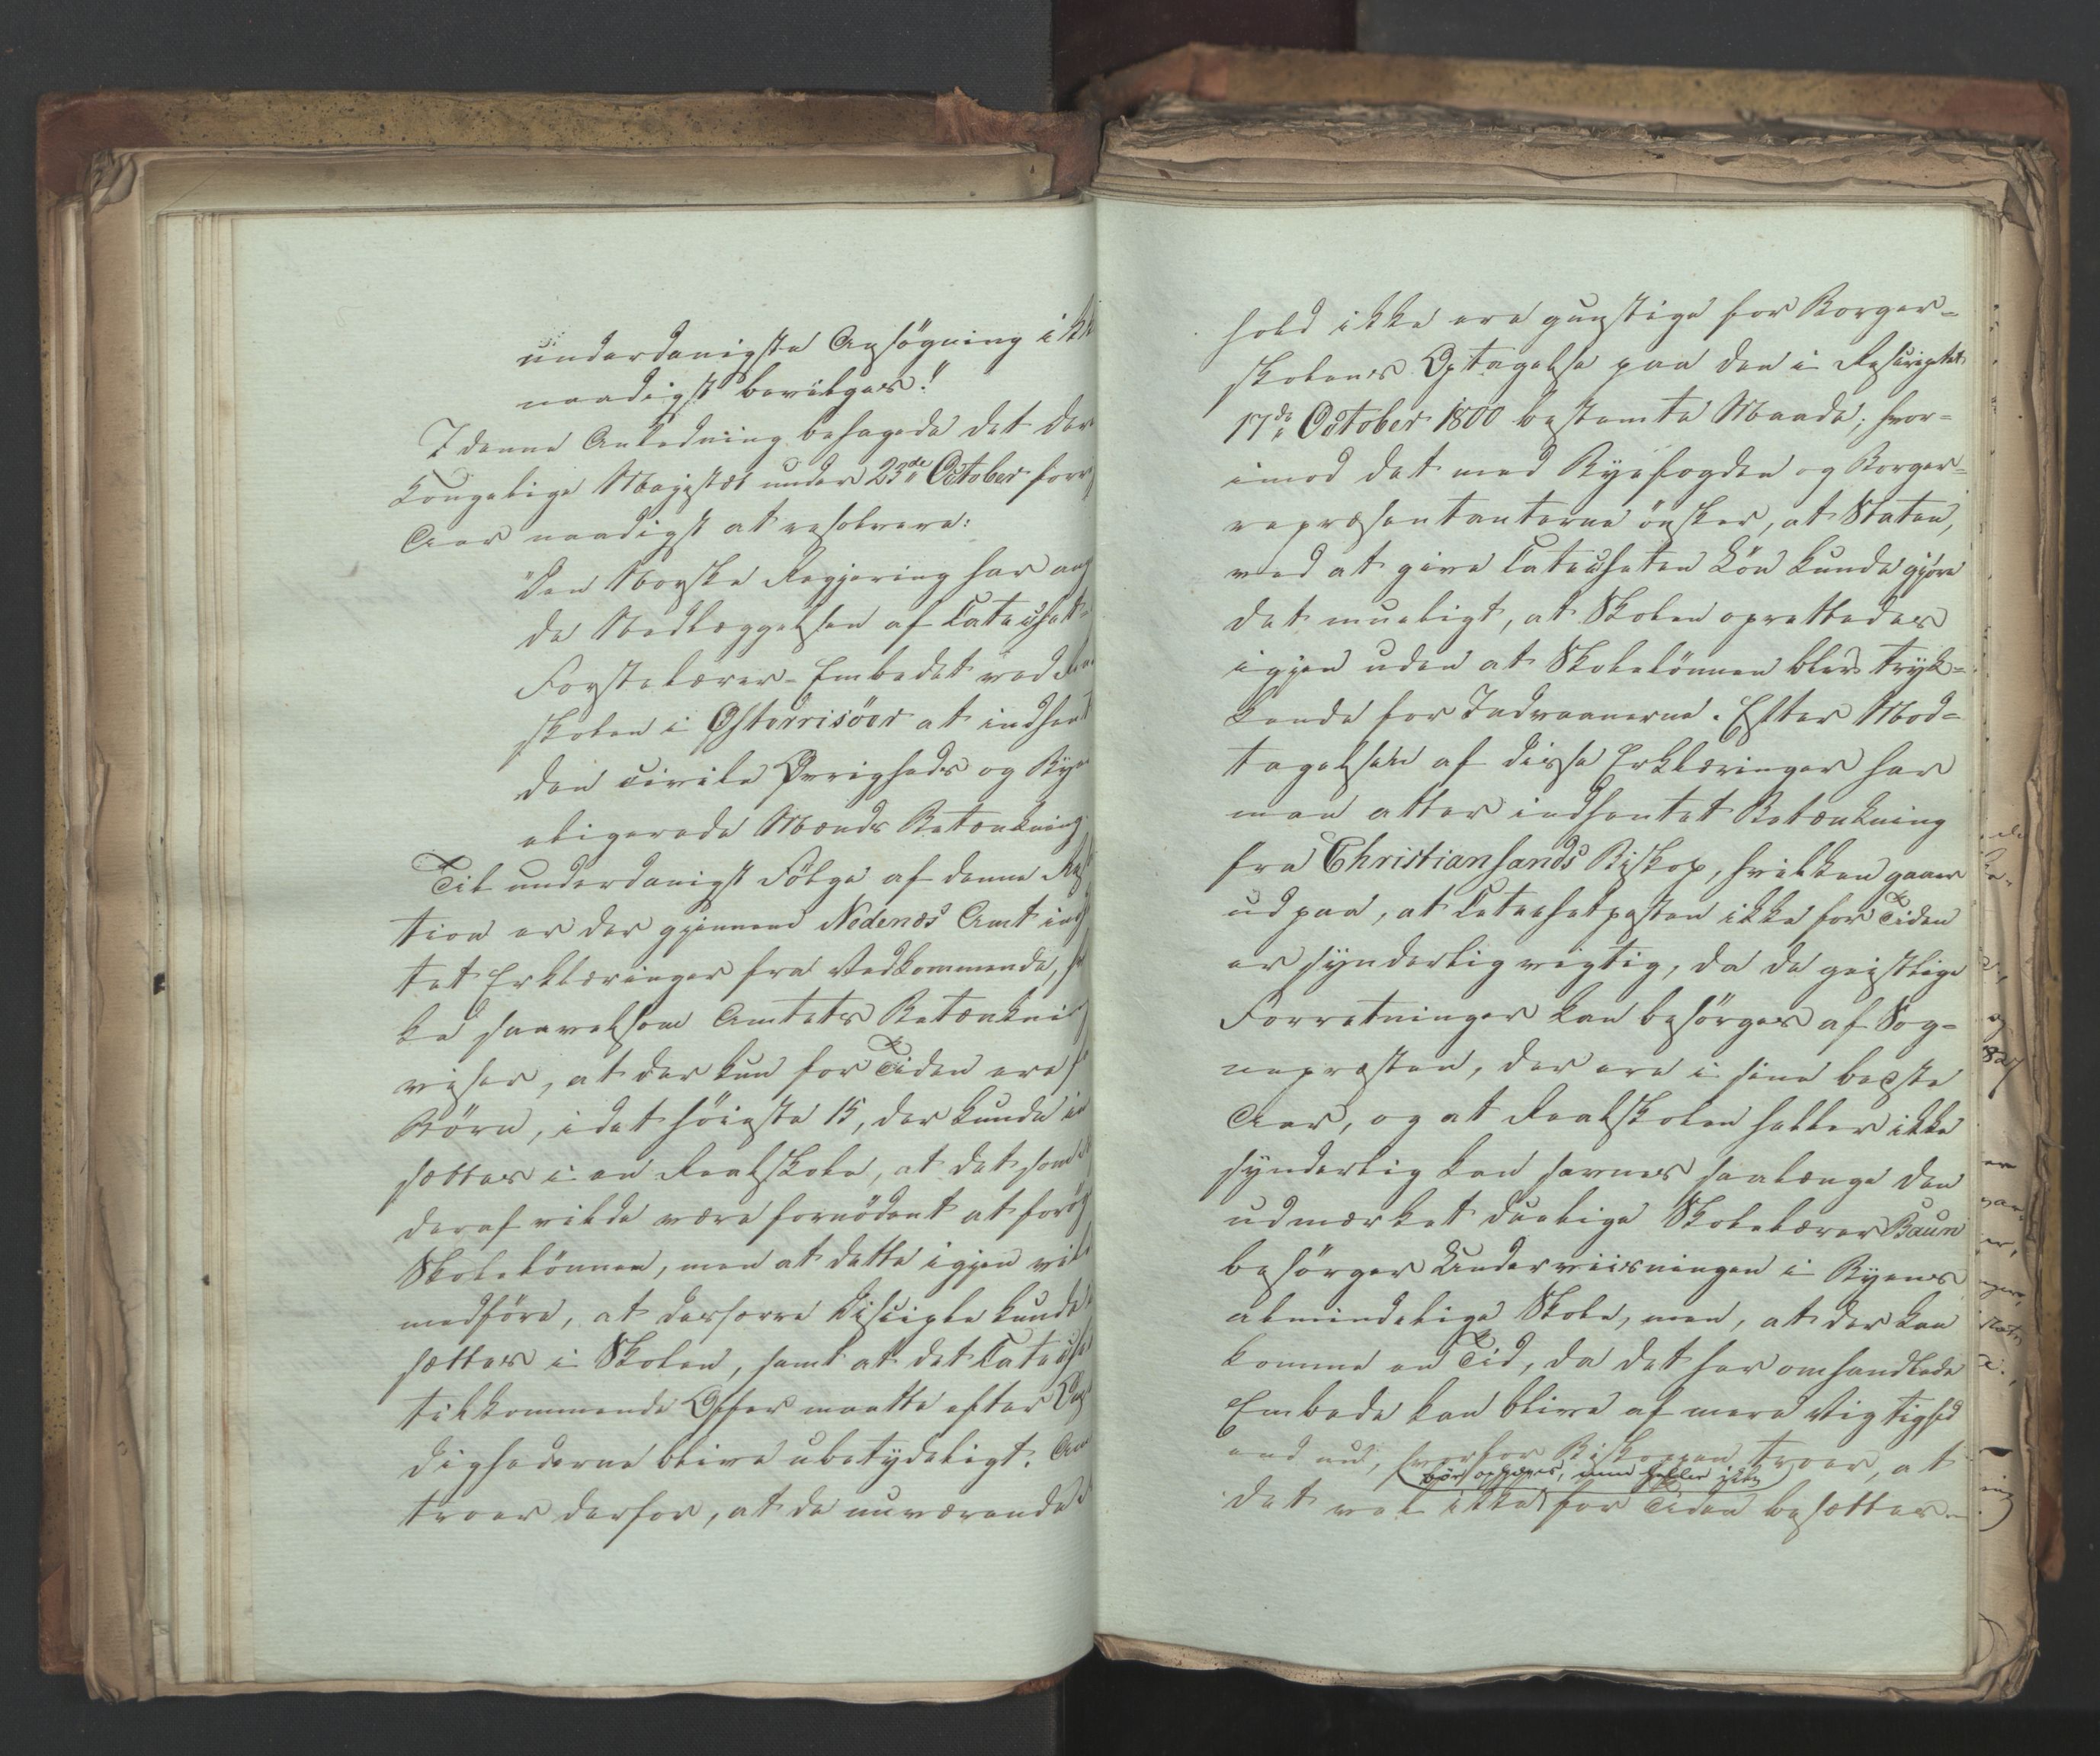 underdanigste Ansøgning ikk
naadigst bevilges."
I denne Anledning behagede det Der
Kongelige Majestæt under 23de October forr
Aar naadigst at resolvere:
"Den Norske Regjering har ang
de Nedlæggelsen af Catechet-
Førstelærer-Embedet ved
skolen i Østerrisöer at indhent
den civile Øvrigheds og Bye
eligerede Mænds Betænkning.
Til underdanigst Følge af denne
tion er der gjennem Nedenæs Amt ind
tet Erklæringer fra Vedkommende,
ke saavelsom Amtets Betænkni
viser, at der kun for Tiden ere f
Börn, i det höieste 15, der kunde in
sættes i en Realskole, at det som
deraf vilde være fornödent at forög
Skolelönnen, men at dette igjen vil
medföre, at desfærre Disciple kunde
sættes i Skolen, samt at det Cateche
tilkommende Offer maatte efter
dighederne blive ubetydeligt. Am
troer derfor, at de nuværende
hold ikke ere gunstige for Borger-
skolens Optagelse paa den i Rescriptet
17de October 1800 bestemte Maade; hvor-
imod det med Byefogden og Borger-
repræsentanterne önsker, at Staten,
ved at give Catecheten Lön kunde gjöre
det mueligt, at Skolen oprettedes
igjen uden at Skolelönnen blev tryk-
kende for Indvaanerne. Efter Mod-
tagelsen af disse Erklæringer har
man atter indhentet Betænkning
fra Christiansands Biskop, hvilken gaaer
ud paa, at Catechetposten ikke for Tiden
er synderlig vigtig, da de geistlige
Forretninger kan besörges af Sog-
nepræsten, der ere i sine bedste
Aar, og at Realskolen heller ikke
synderlig kan savnes saalænge den
udmærket duelige Skolelærer Baun
besörger Underviisningen i Byens
almindelige Skole, men, at der kan
komme en Tid, da det her omhandlede
Embede kan blive af mere Vigtighed
end nu, hvorfor Biskoppen troer, at
bör ophæves, men heller ikke
det vel ikke for Tiden besættes.